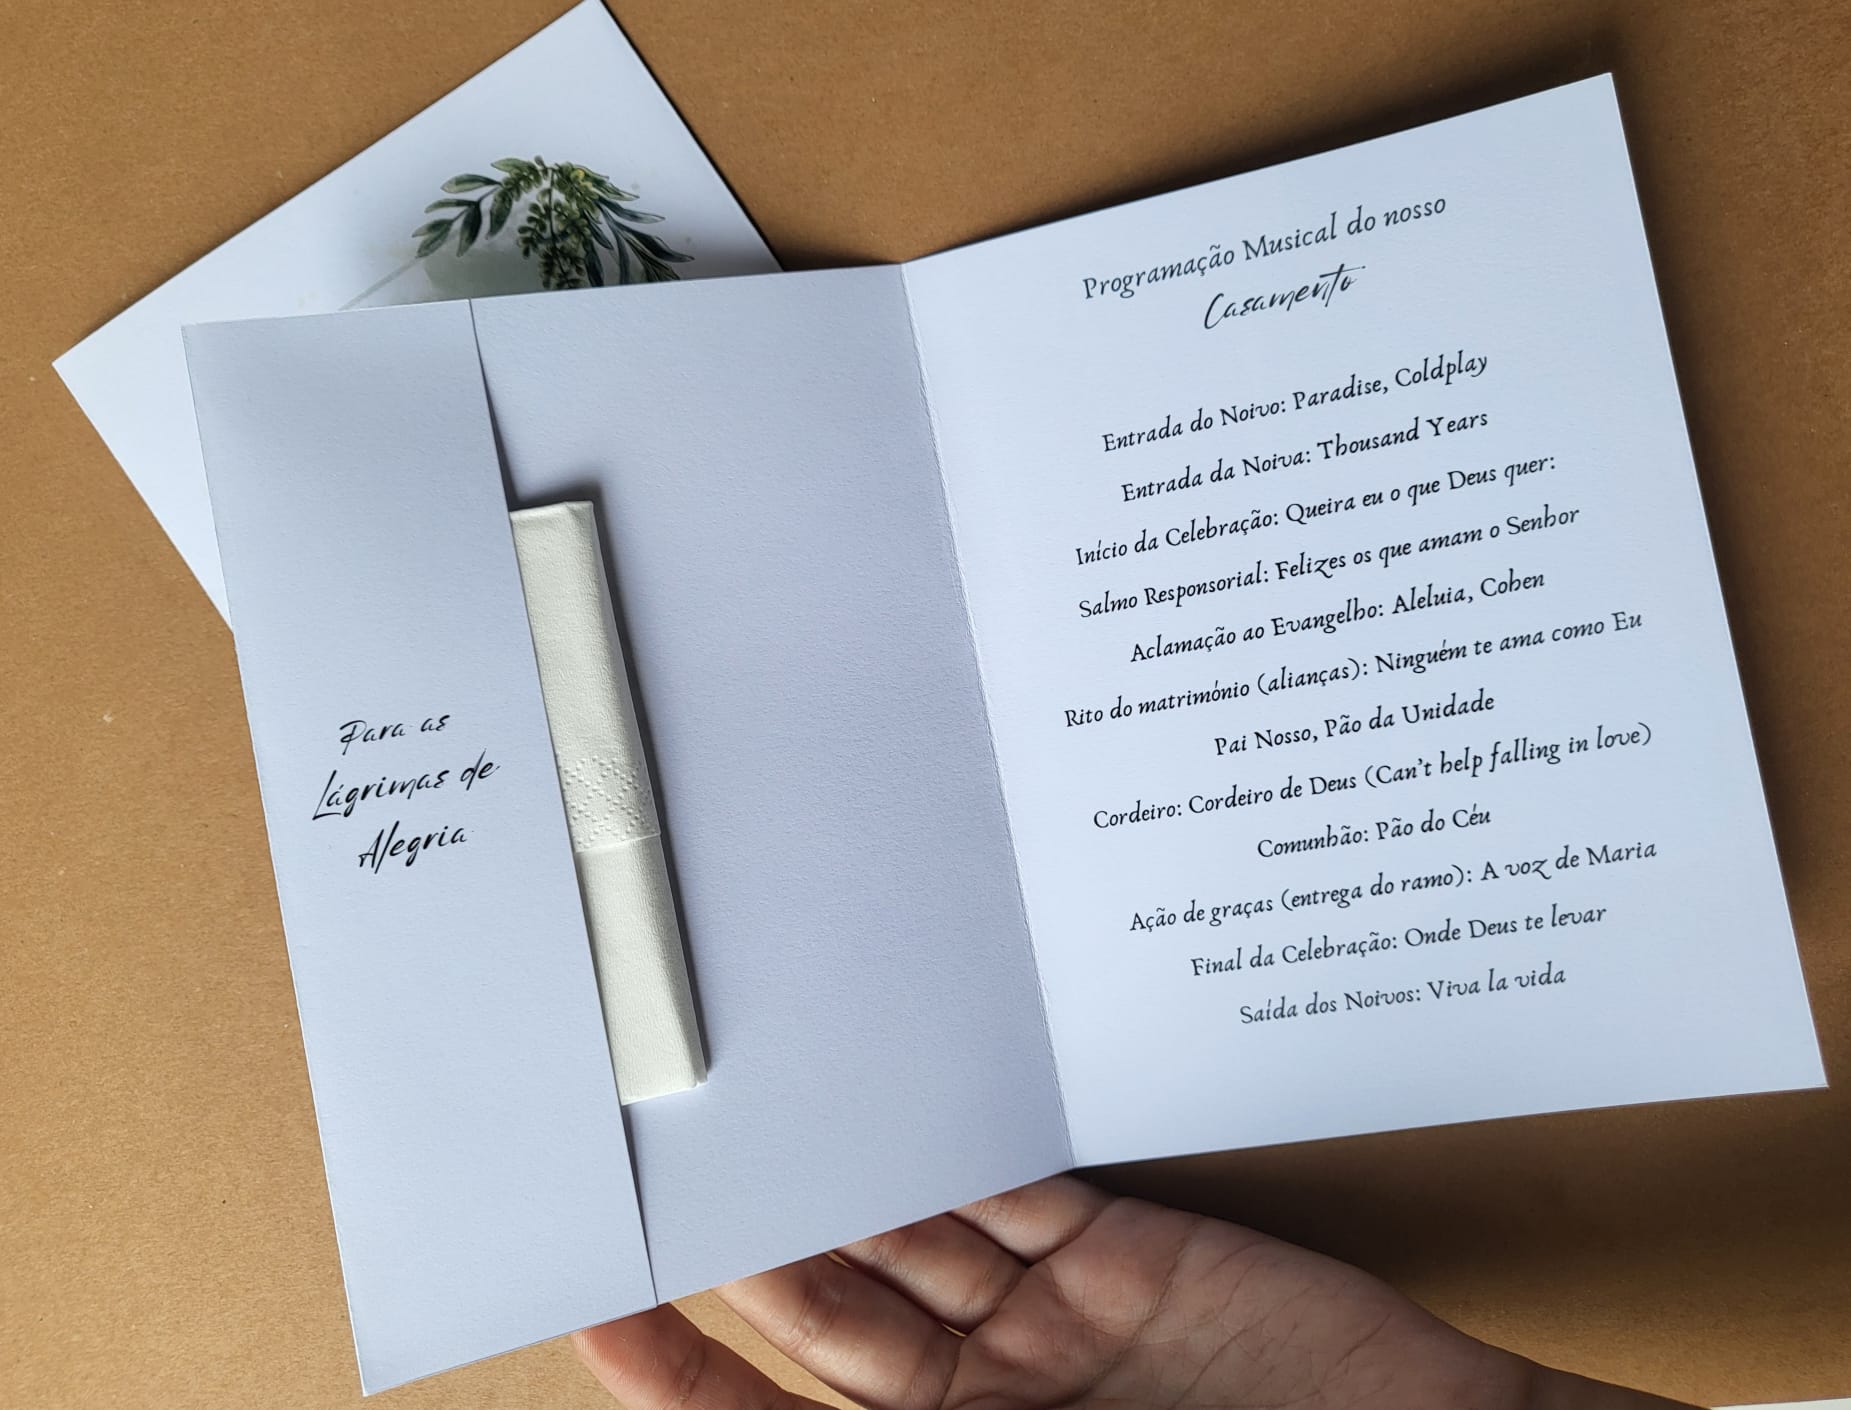 Para as
Lágrimas de
Alegria
Programação Musical do nosso
Casamento
Entrada do Noivo: Paradise, Coldplay
Entrada da Noiva: Thousand Years
Início da Celebração: Queira eu o que Deus quer:
Salmo Responsorial: Felizes os que amam o Senhor
Aclamação ao Evangelho: Aleluia, Cohen
Rito do matrimónio (alianças): Ninguém te ama como Eu
Pai Nosso, Pão da Unidade
Cordeiro: Cordeiro de Deus (Can't help falling in love)
Comunhão: Pão do Céu
Ação de graças (entrega do ramo): A voz de Maria
Final da Celebração: Onde Deus te levar
Saída dos Noivos: Viva la vida